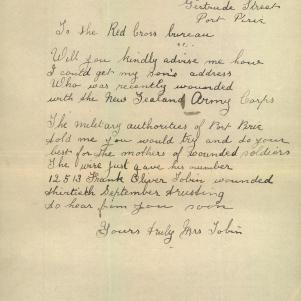 Gertrude Street
Port Pirie
To the Red Cross bureau
Will you kindly advise me how
I could get my Son's address
Who was recently wounded
with the New Zealand Army Corps
The military authorities of Port Pirie
told me you would try and do your
best for the mothers of wounded soldiers
The wire just gave his number
12513 Frank Oliver Tobin wounded
thirtieth September trusting
to hear from you soon
Yours truly Mrs Tobin